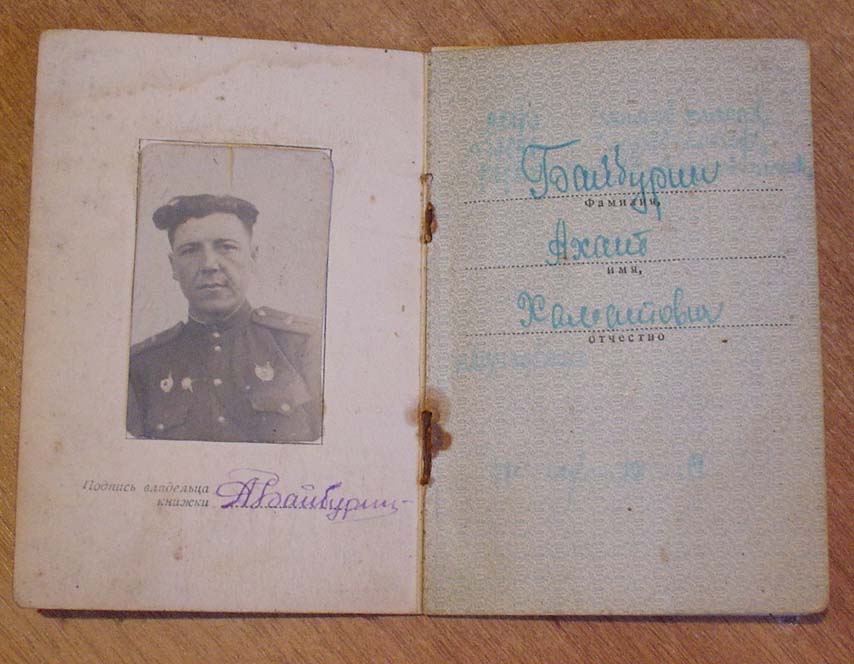 Подпись владельца
книжки АБайбурин
Байбурин
Фамилия,
Ахат
имя,
Хаматович
отчество